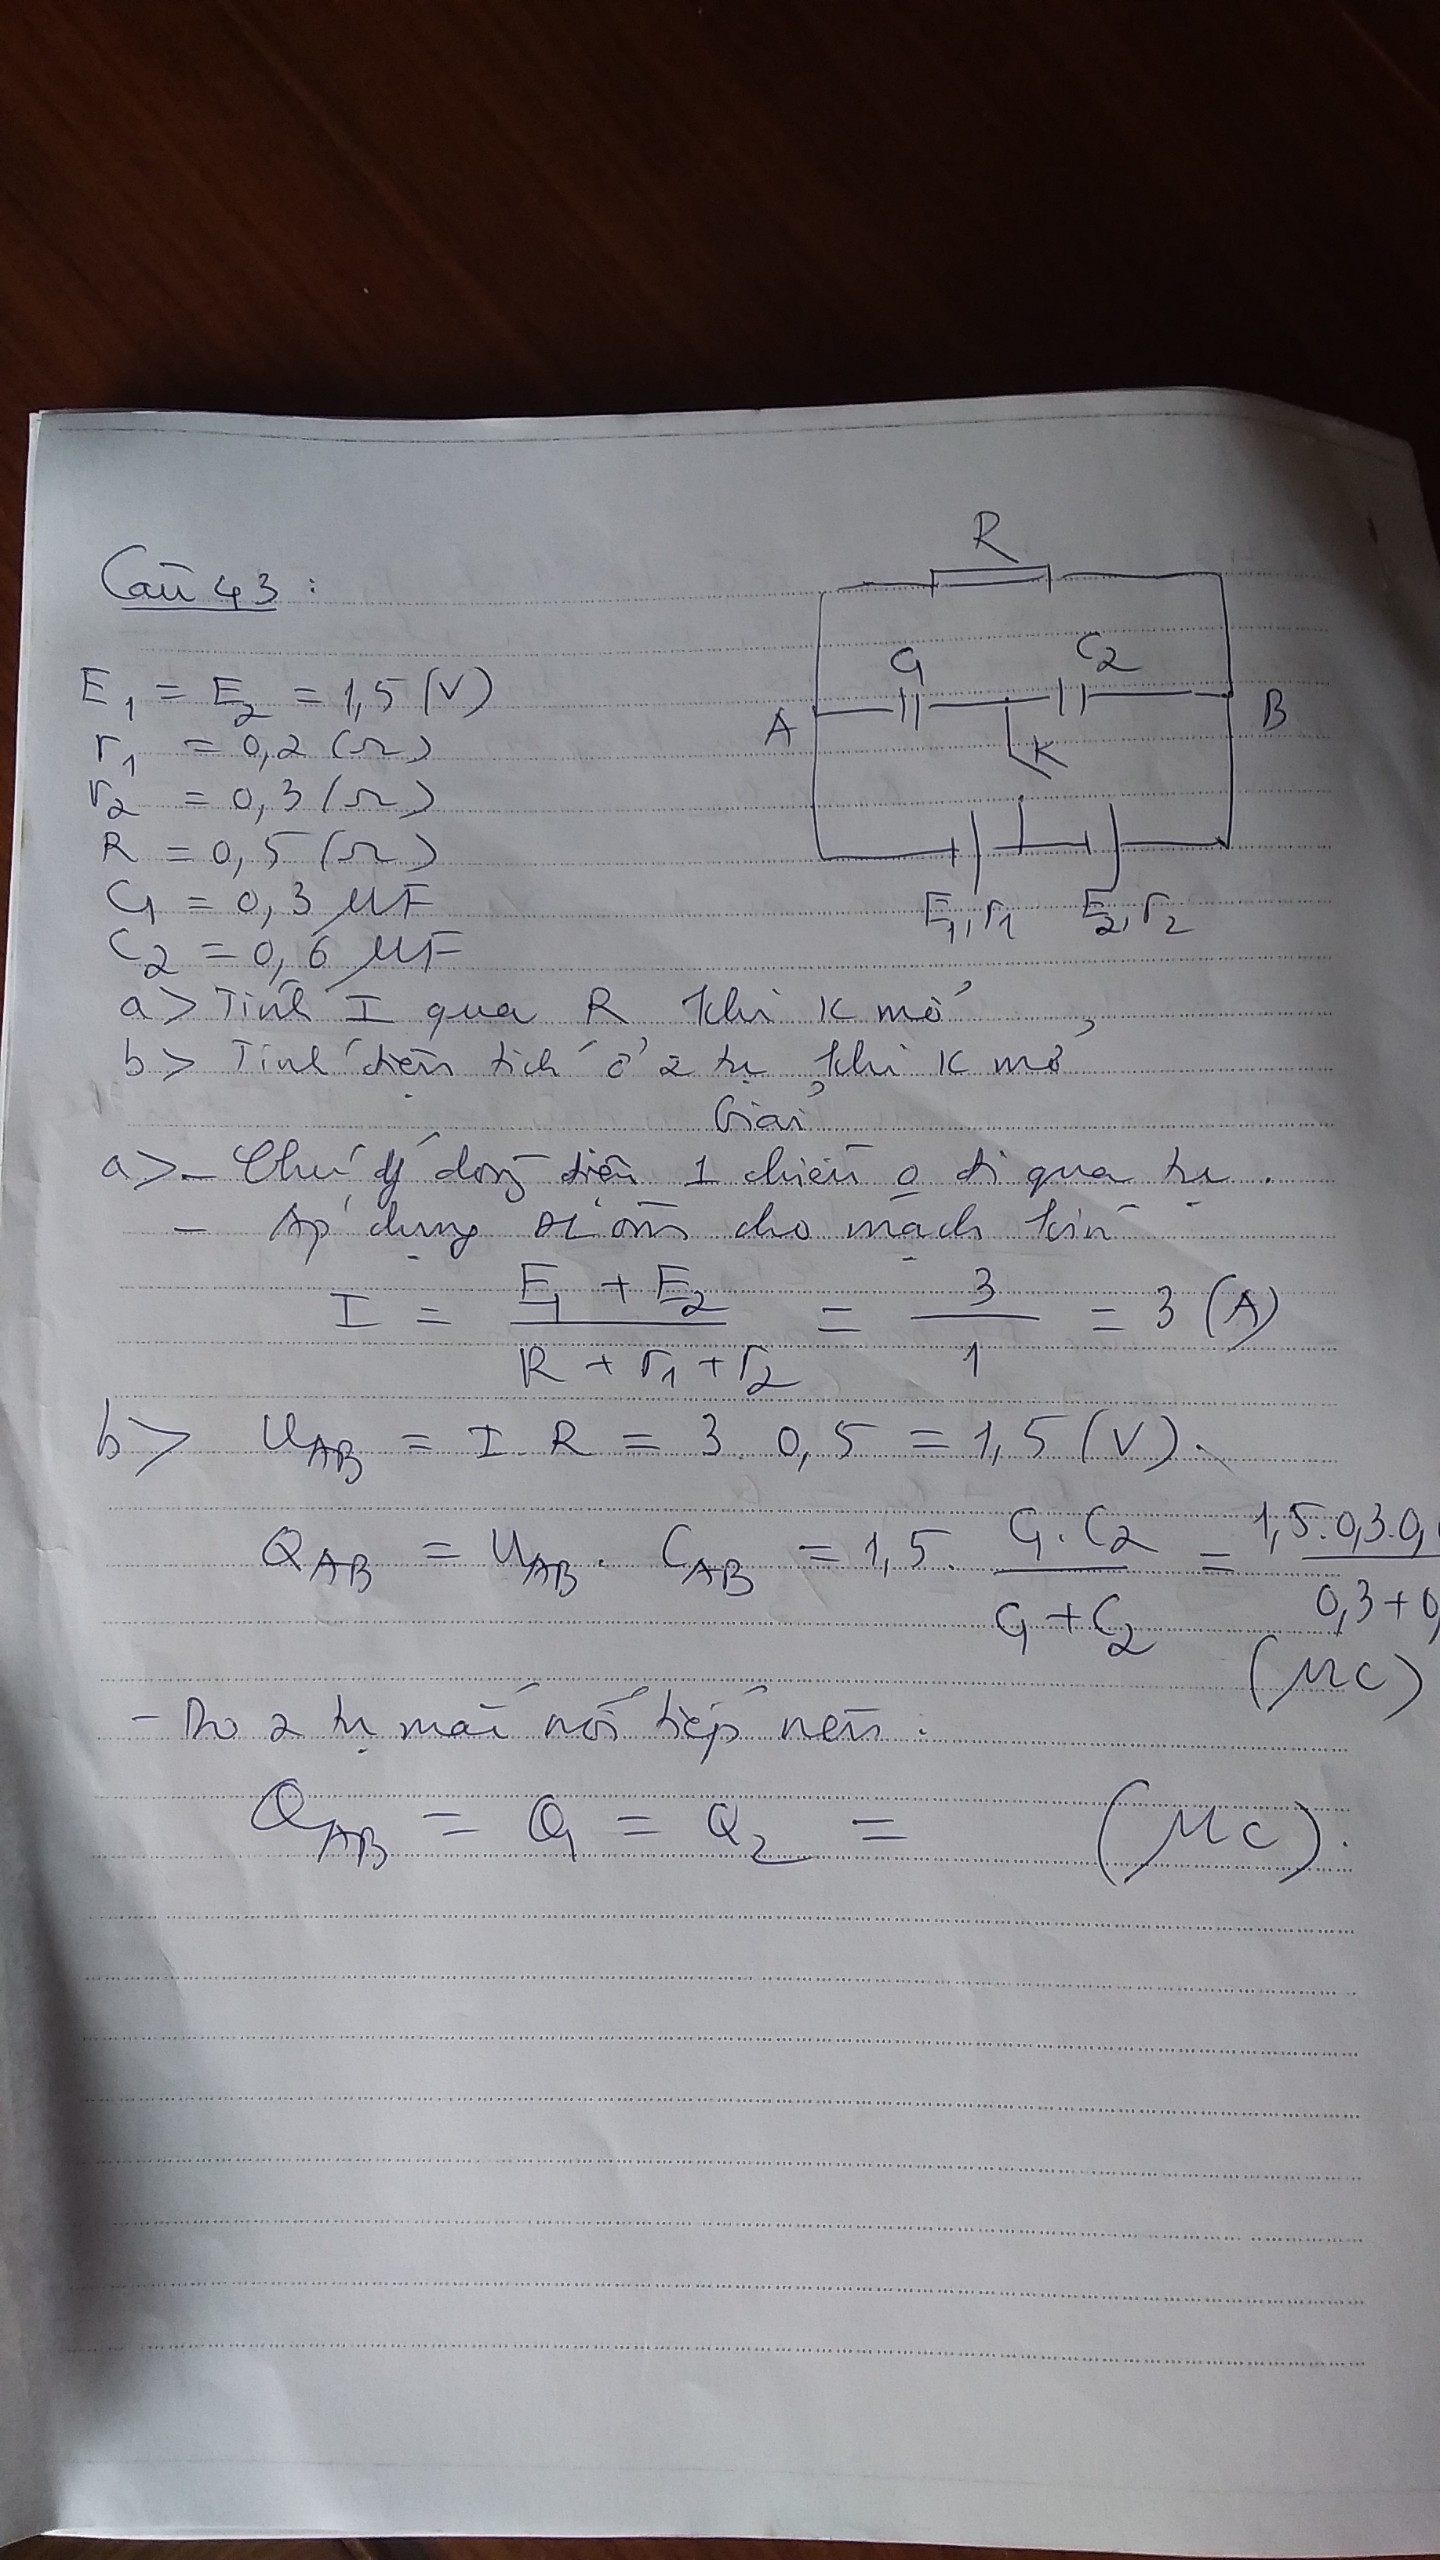 Câu 43 :
R
C1
C2
A
B
K
E1, r1
E2, r2
E1 = E2 = 1,5 (V)
r1 = 0,2 (Ω)
r2 = 0,3 (Ω)
R = 0,5 (Ω)
C1 = 0,3 μF
C2 = 0,6 μF
a> Tính I qua R khi K mở
b> Tính điện tích ở 2 tụ khi K mở
Giải
a> - Chú ý dòng điện 1 chiều o đi qua tụ .
- Áp dụng ĐL ôm cho mạch kín
I = (E1 + E2) / (R + r1 + r2) = 3 / 1 = 3 (A)
b> UAB = I . R = 3 . 0,5 = 1,5 (V).
QAB = UAB . CAB = 1,5 . (C1 . C2) / (C1 + C2) = (1,5 . 0,3 . 0,) / (0,3 + 0,)
(μC)
- Do 2 tụ mắc nối tiếp nên :
QAB = Q1 = Q2 = (μC) .